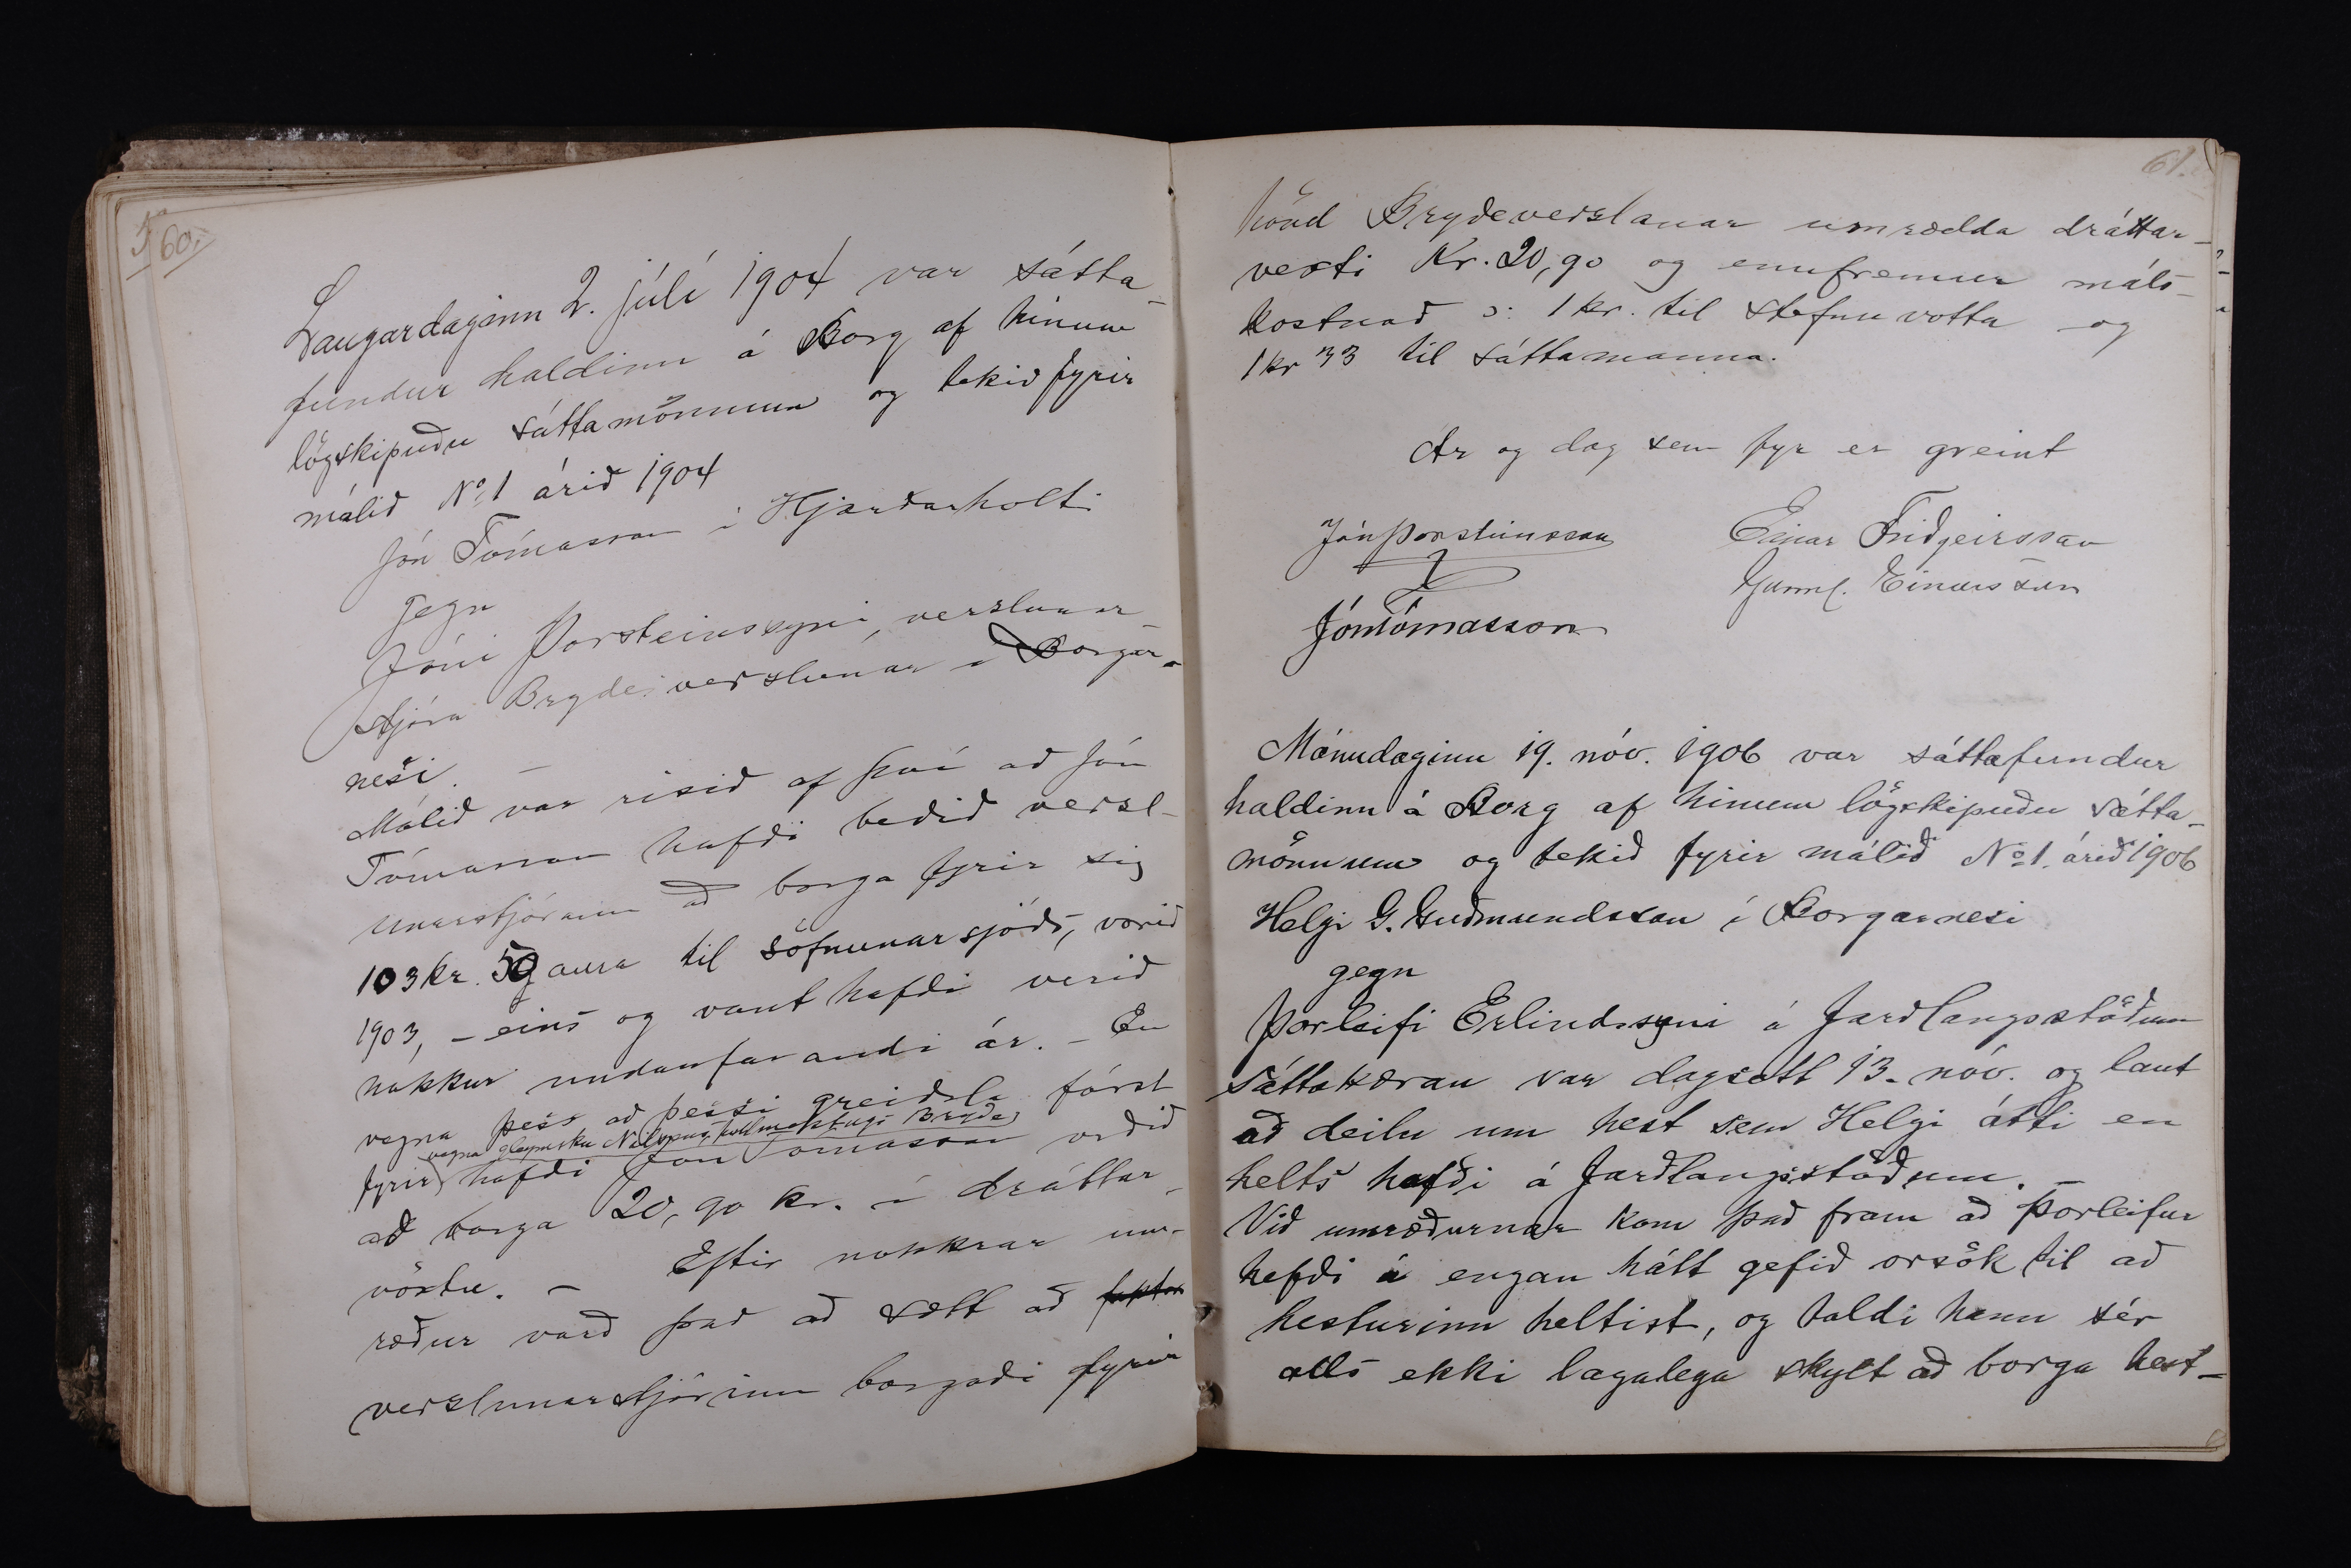 60.
Laugardaginn 2. júlí 1904 var sátta-
fundur haldinn á Borg af hinum
lögskipuðu sáttamönnum og tekið fyrir
málið No 1 árið 1904
Jón Tómasson í Hjarðarholti
gegn
Jóni Þorsteinssyni, verslunar-
stjóra Brydesverslunar í Borgar-
nesi. –
Málið var risið af því að Jón
Tómasson hafði beðið versl-
unarstjórann að borga fyrir sig
103 kr. 59 aura til söfnunarsjóðs, vorið
1903, – eins og vant hafði verið
nokkur undanfarandi ár. – En
vegna þess að þessi greiðsla fórst
vegna gleymsku Nielsens fullmektugs Bryde
fyrir hafði Jón Tómasson orðið
að borga 20,90 kr. í dráttar-
vöxtu. – Eftir nokkrar um-
ræður varð það að sætt að faktor
verslunarstjórinn borgaði fyrir
61.
hönd Brydeverslanar umrædda dráttar-
vexti Kr. 20,90 og ennfremur máls-
kostnað ɔ: 1 kr. til stefnuvotta og
1 kr 33 til sáttamanna.
Ár og dag sem fyr er greint
Jón Þorsteinsson Einar Friðgeirsson
Jón Tómasson Gunnl. Einarsson
Mánudaginn 19. nóv. 1906 var sáttafundur
haldinn á Borg af hinum lögskipuðu sátta-
mönnum og tekið fyrir málið No 1. árið 1906
Helgi G. Guðmundsson í Borgarnesi
gegn
Þorleifi Erlindssyni á Jarðlangsstöðum
Sáttakæran var dagsett 13. nóv. og laut
að deilu um hest sem Helgi átti en
helts hafði á Jarðlangsstöðum. –
Við umræðurnar kom það fram að Þorleifur
hefði á engan hátt gefið orsök til að
hesturinn heltist, og taldi hann sér
alls ekki lagalega skylt að borga hest-